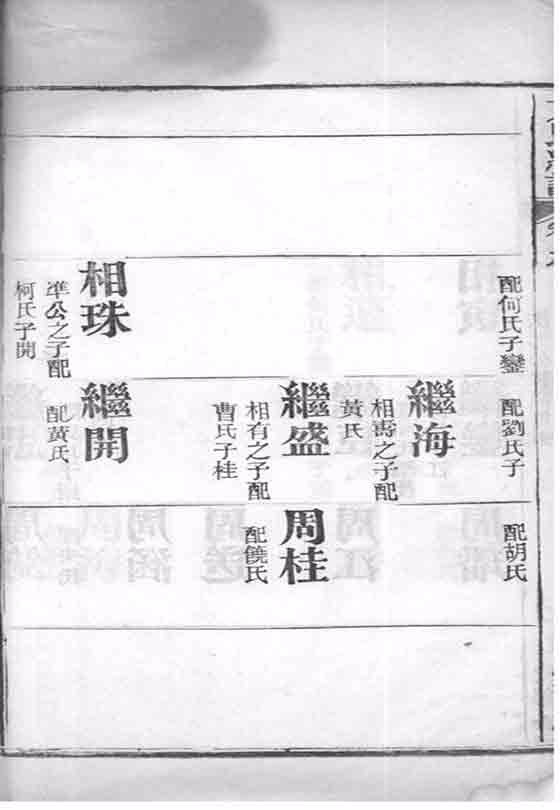 配何氏子鑾
相珠
準公之子配
柯氏子開
配劉氏子
繼海
相壽之子配
黃氏
繼盛
相有之子配
曹氏子桂
繼開
配黃氏
配胡氏
周桂
配饒氏